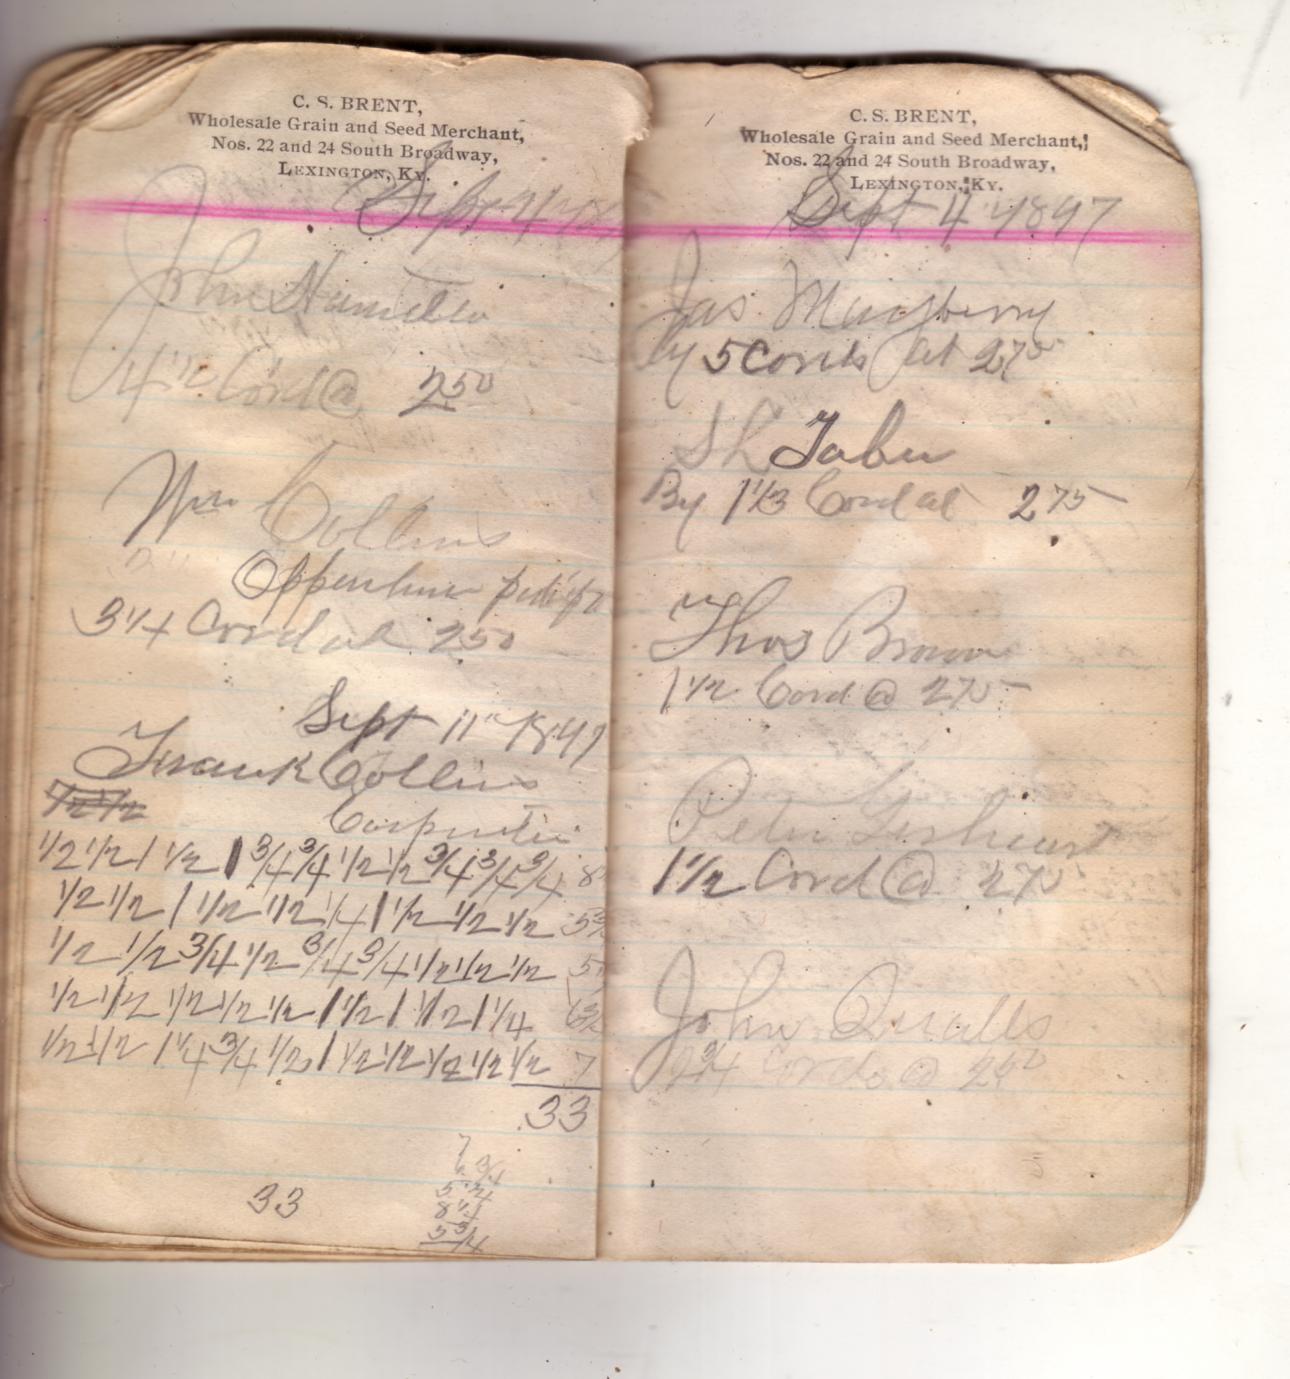 C. S. BRENT,
Wholesale Grain and Seed Merchant,
Nos. 22 and 24 South Broadway,
LEXINGTON, KY.
Sept 4
John Hamilton
4 1/2 Cord @ 2 50
Wm Collins
3 1/4 Cord at 2 50
Sept 11" 1897
Frank Collins
1/2 1/2 1 1/2 1 3/4 3/4 1/2 1/2 3/4 3/4 3/4 8
1/2 1/2 1 1/2 1/2 1/4 1 1/2 1/2 1/2
1/2 1/2 3/4 1/2 3/4 3/4 1/2 1/2 1/2
1/2 1/2 1/2 1/2 1/2 1 1/2 1 1/2 1 1/4
1/2 1/2 1 1/4 3/4 1/2 1 1/2 1/2 1/2 1/2 1/2 7
33
7
6 3/4
5 3/4
33
C. S. BRENT,
Wholesale Grain and Seed Merchant,
Nos. 22 and 24 South Broadway,
LEXINGTON, KY.
Sept 4" 1897
Jas Mayberry
By 5 Cords at 2 75
S L Taber
By 1 1/3 Cord at 2 75
Thos Brown
1 1/2 Cord @ 2 75
Peter
1 1/2 Cord @ 2 75
John Qualls
2 3/4 Cords @ 2 50